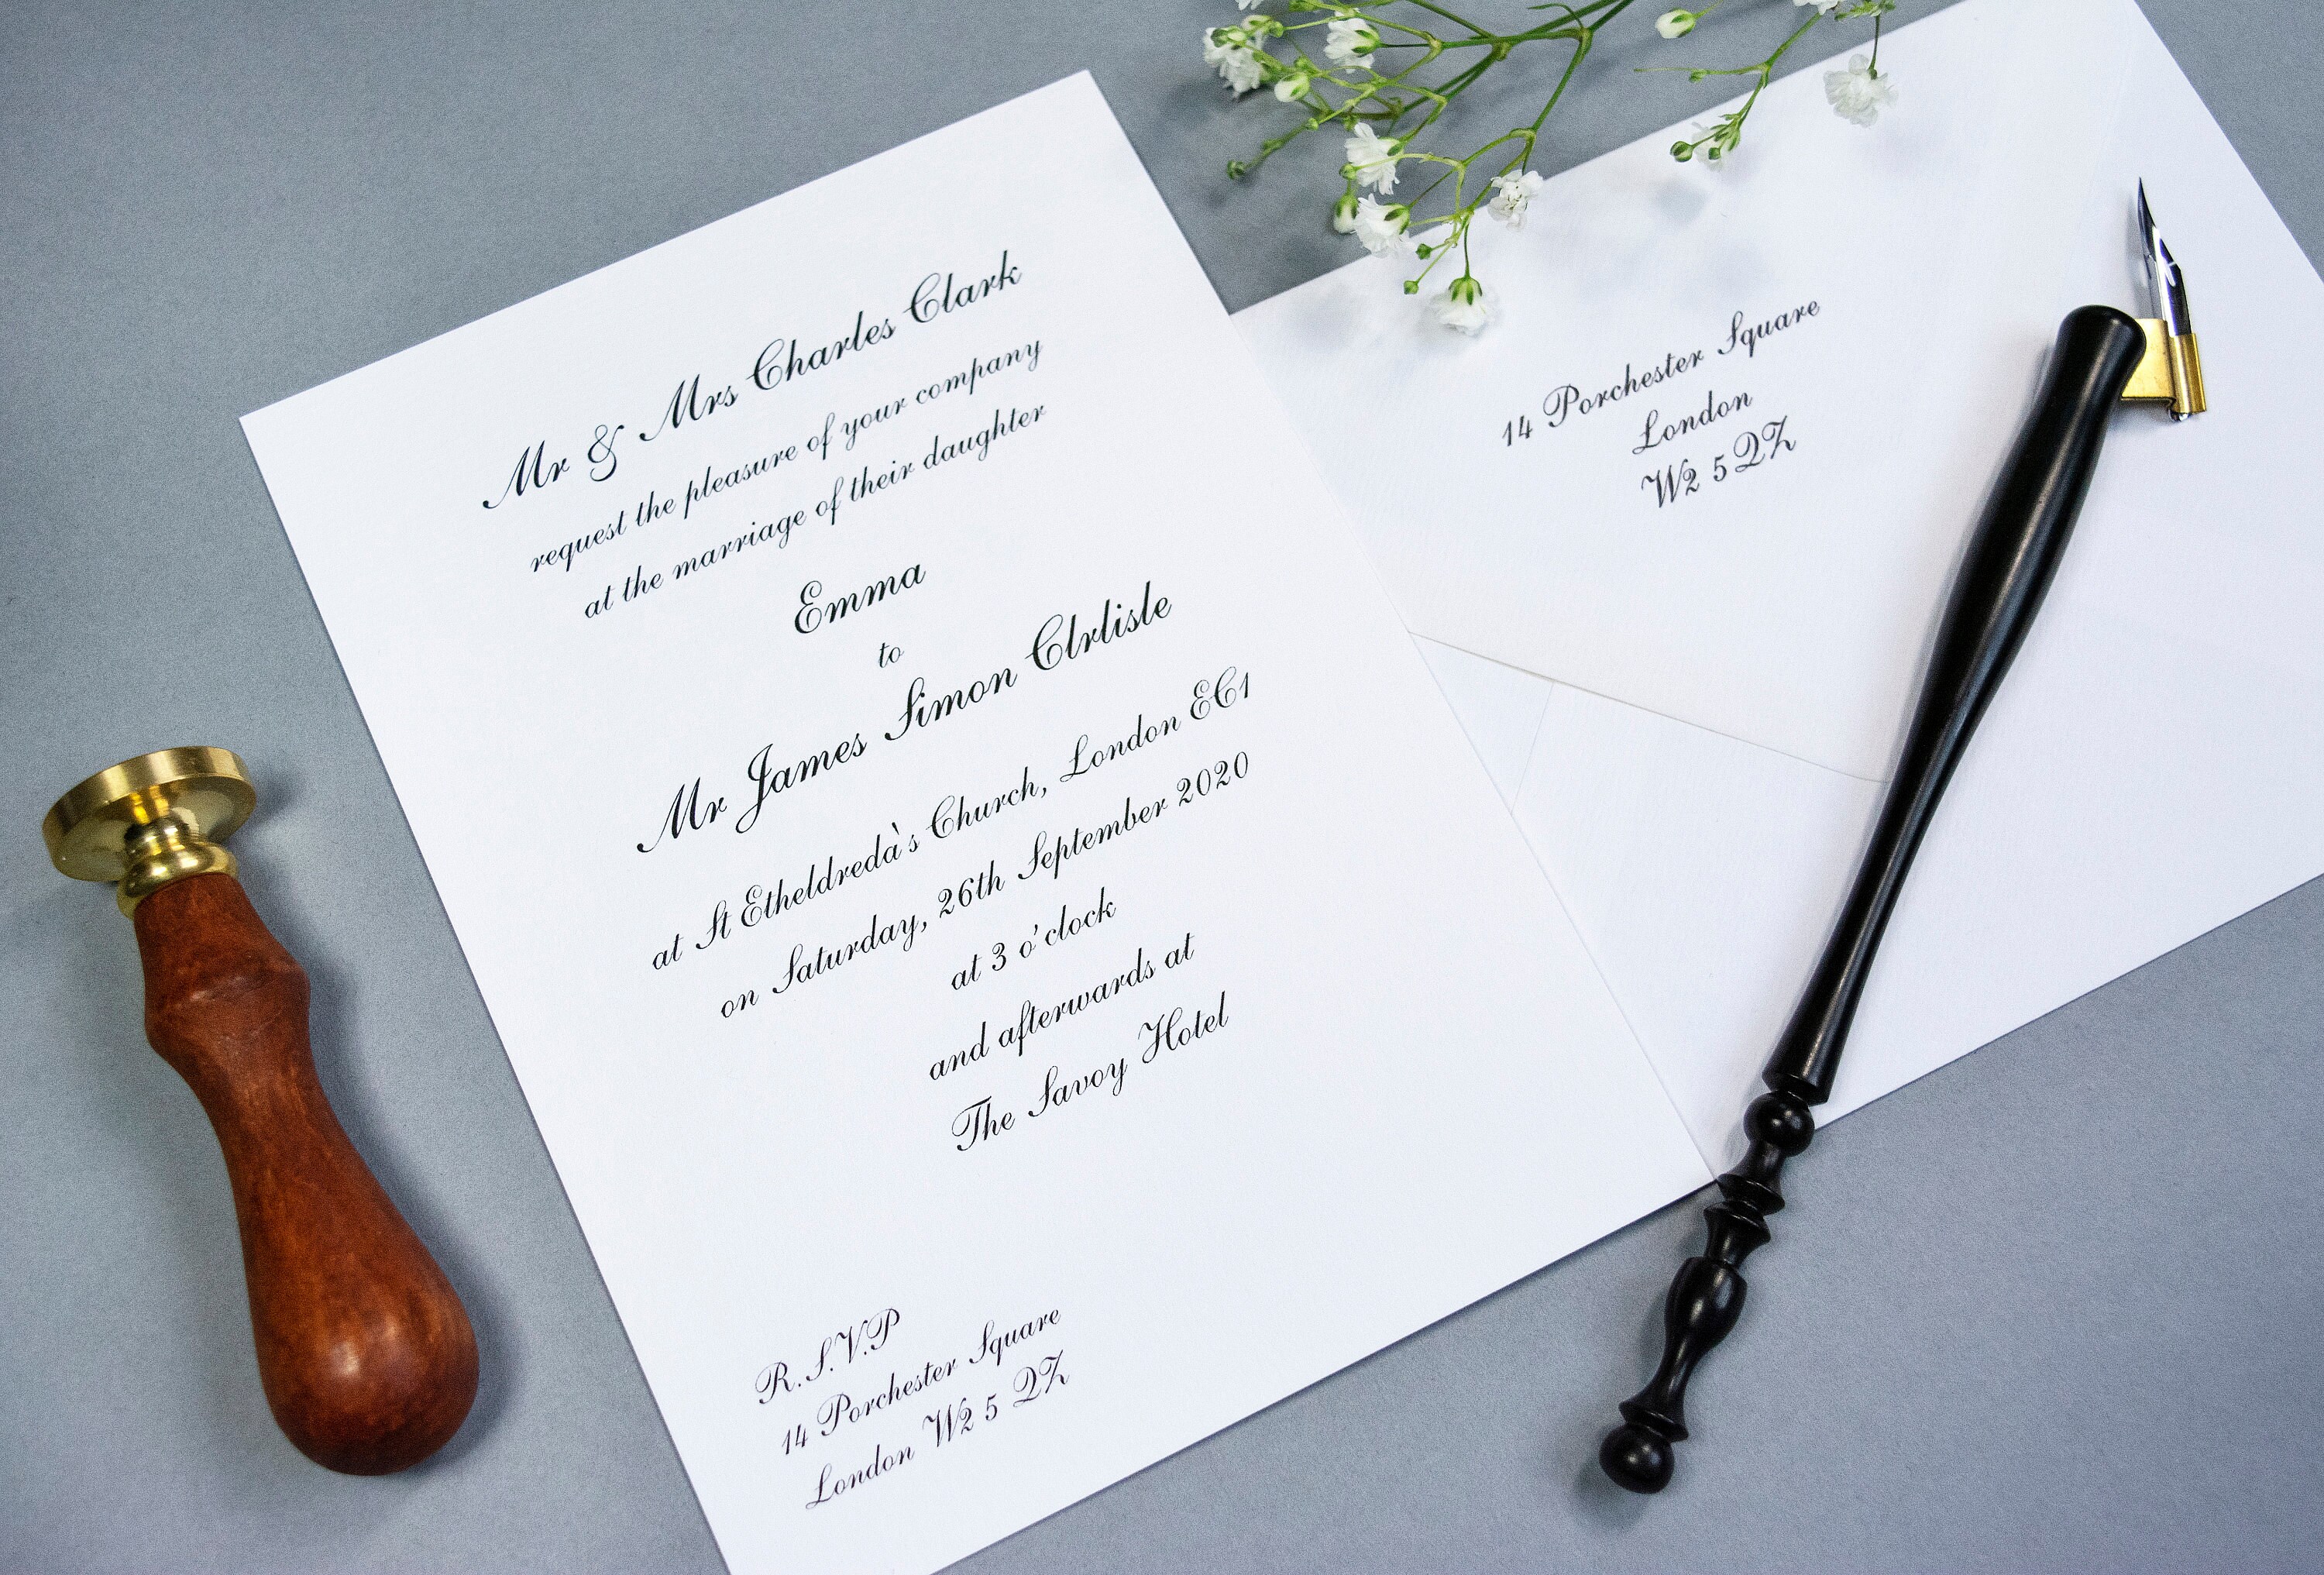 Mr & Mrs Charles Clark
request the pleasure of your company
at the marriage of their daughter
Emma
to
Mr James Simon Clrlisle
at St Etheldreda`s Church, London EC1
on Saturday, 26th September 2020
at 3 o'clock
and afterwards at
The Savoy Hotel
R.S.V.P
14 Porchester Square
London W2 5 QZ
14 Porchester Square
London
W2 5QZ